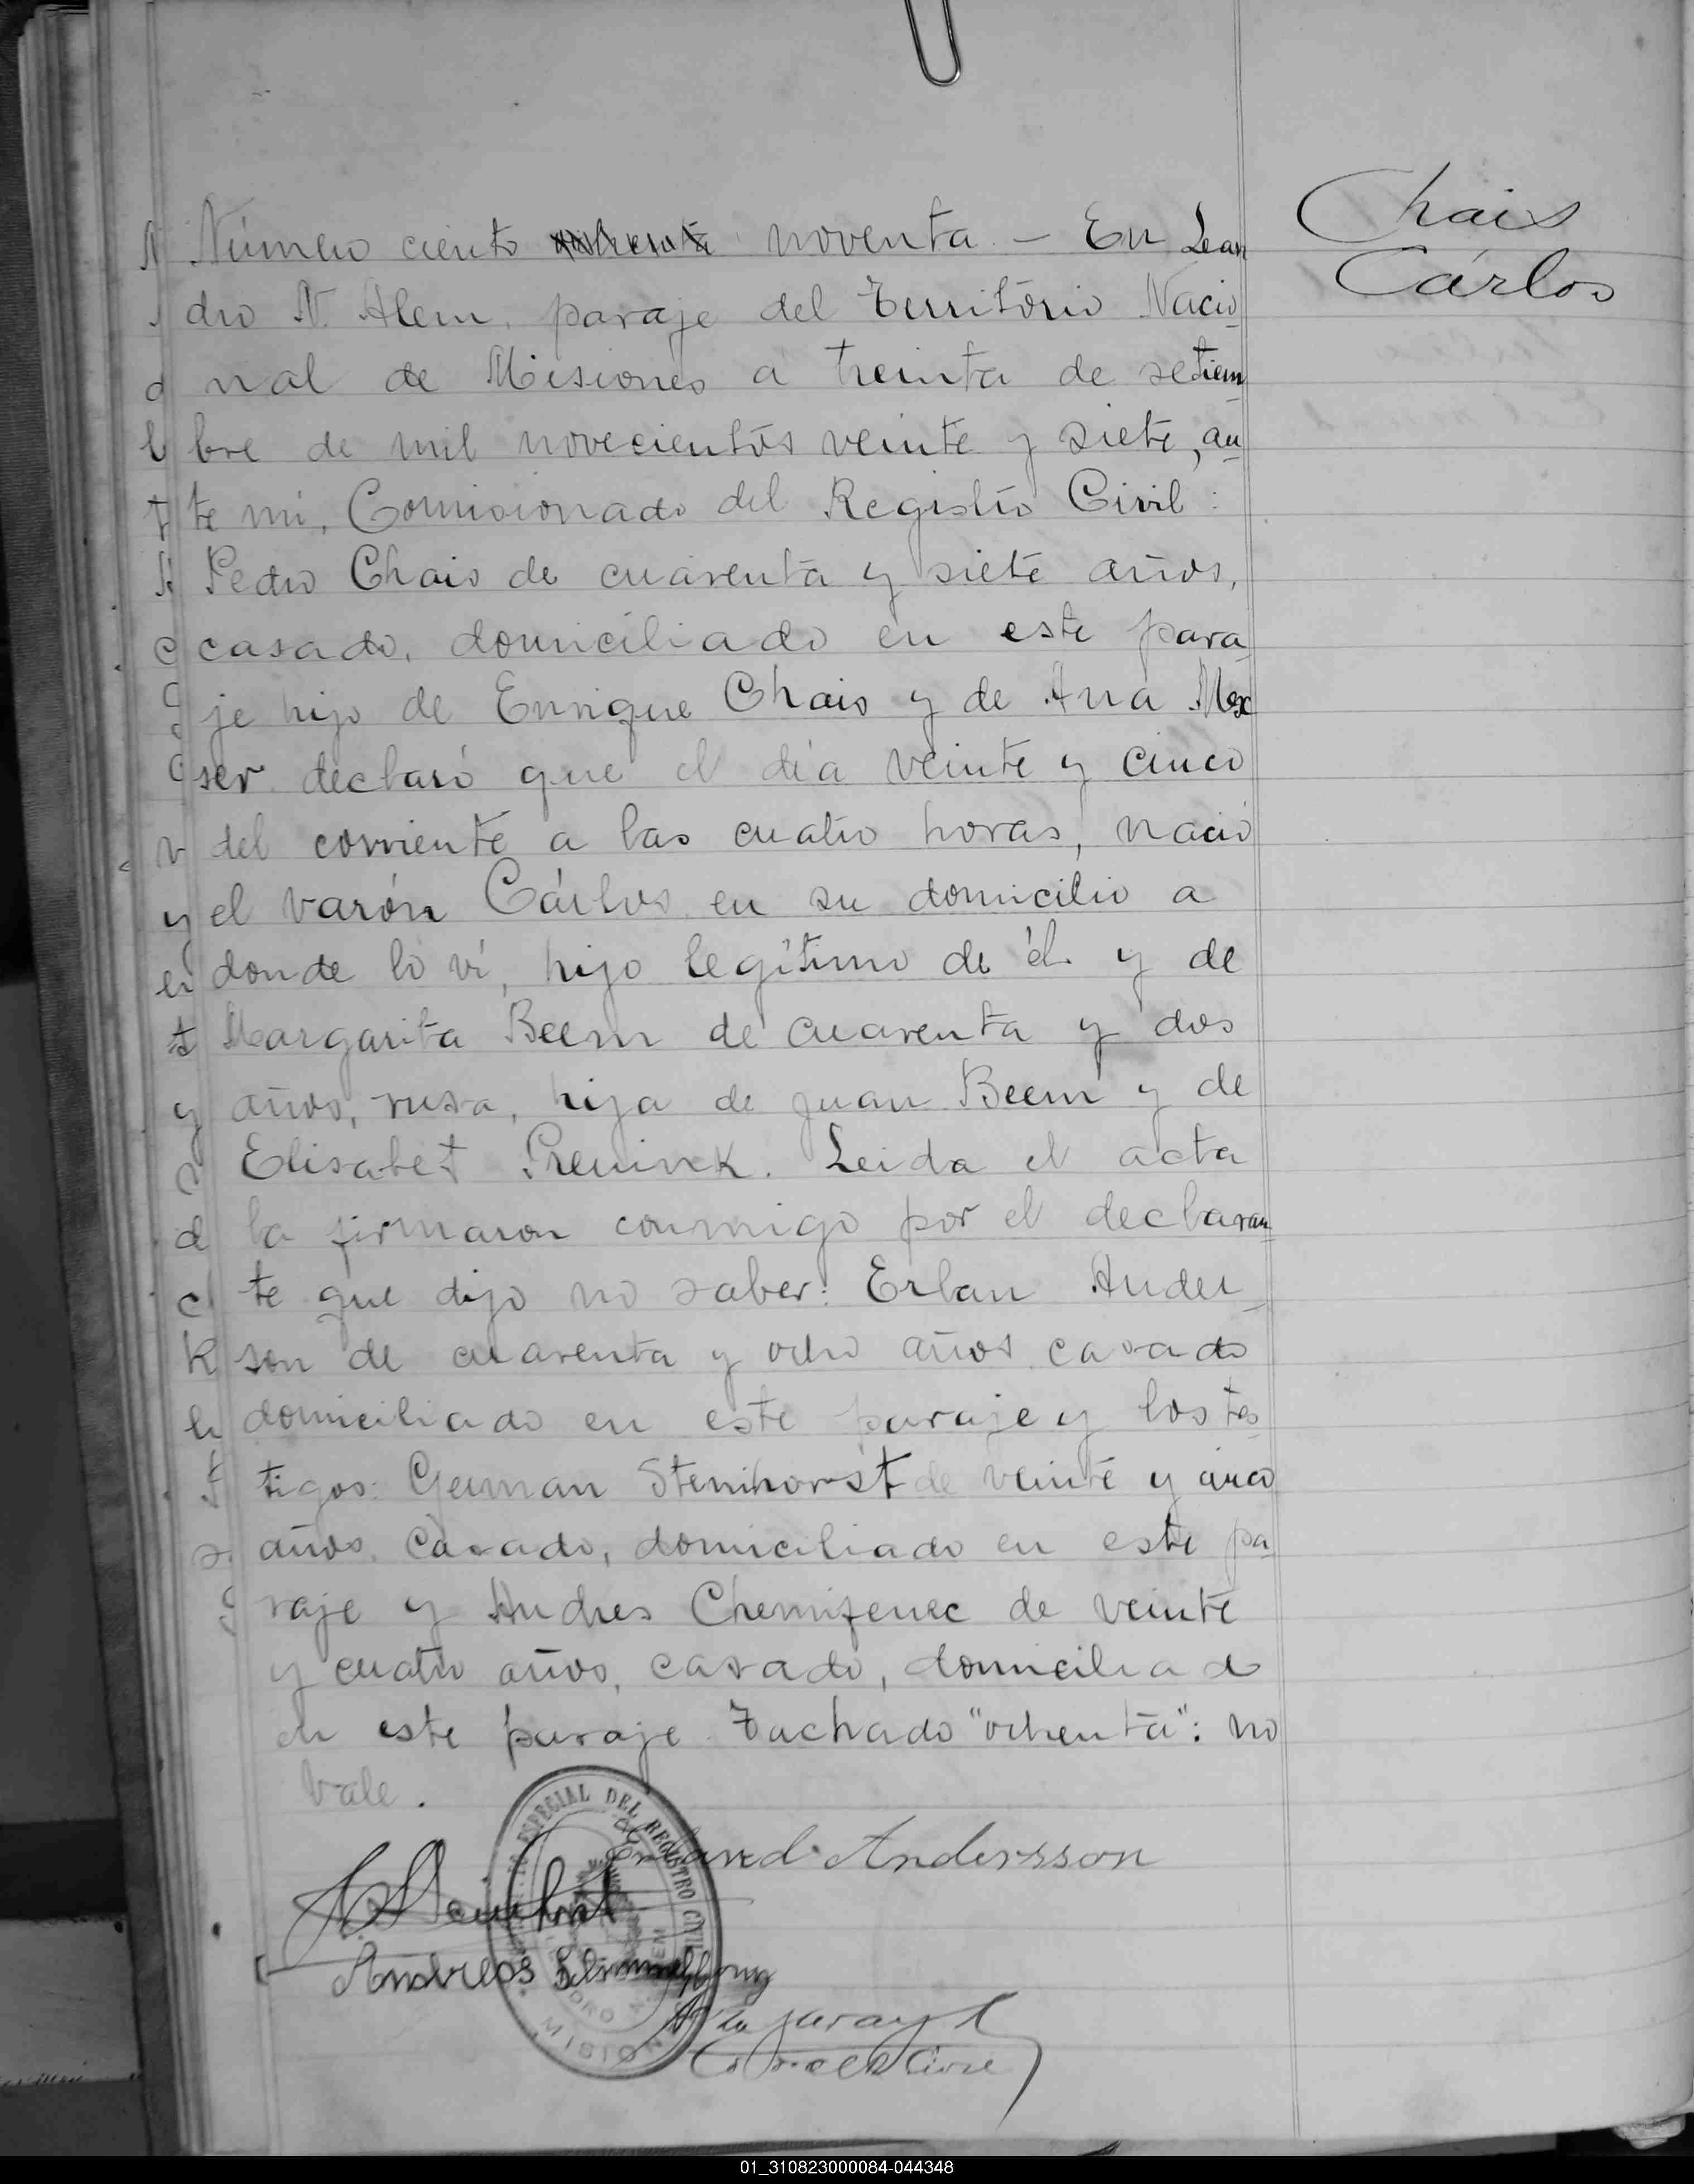 Chais
Cárlos
Número ciento ochenta noventa. – En Lean
dro N. Alem, paraje del Território Nacio
nal de Misiones a treinta de setiem
bre de mil novecientos veinte y siete, an
te mi, Comisionado del Registro Civil:
Pedro Chais de cuarenta y siete años,
casado, domiciliado en este para
je hijo de Enrique Chais y de Ana Mex
ser declaró que el día veinte y cinco
del corriente a las cuatro horas, nació
el varón Cárlos en su domicilio a
donde lo ví, hijo legítimo de él y de
Margarita Beem de cuarenta y dos
años, rusa, hija de Juan Beem y de
Elisabet Preninck. Leida el acta
la firmaron conmigo por el declaran
te que dijo no saber: Erlan Ander
son de cuarenta y ocho años casado
domiciliado en este paraje y los tes
tigos: German Stenihorst de veinte y cinco
años, casado, domiciliado en este pa
raje y Andres Chemifenec de veinte
y cuatro años, casado, domiciliado
en este paraje. Tachado "ochenta": no
vale.
ESPECIAL DEL REGISTRO CIVIL
Erland Andersson
Andreas
MISIONES